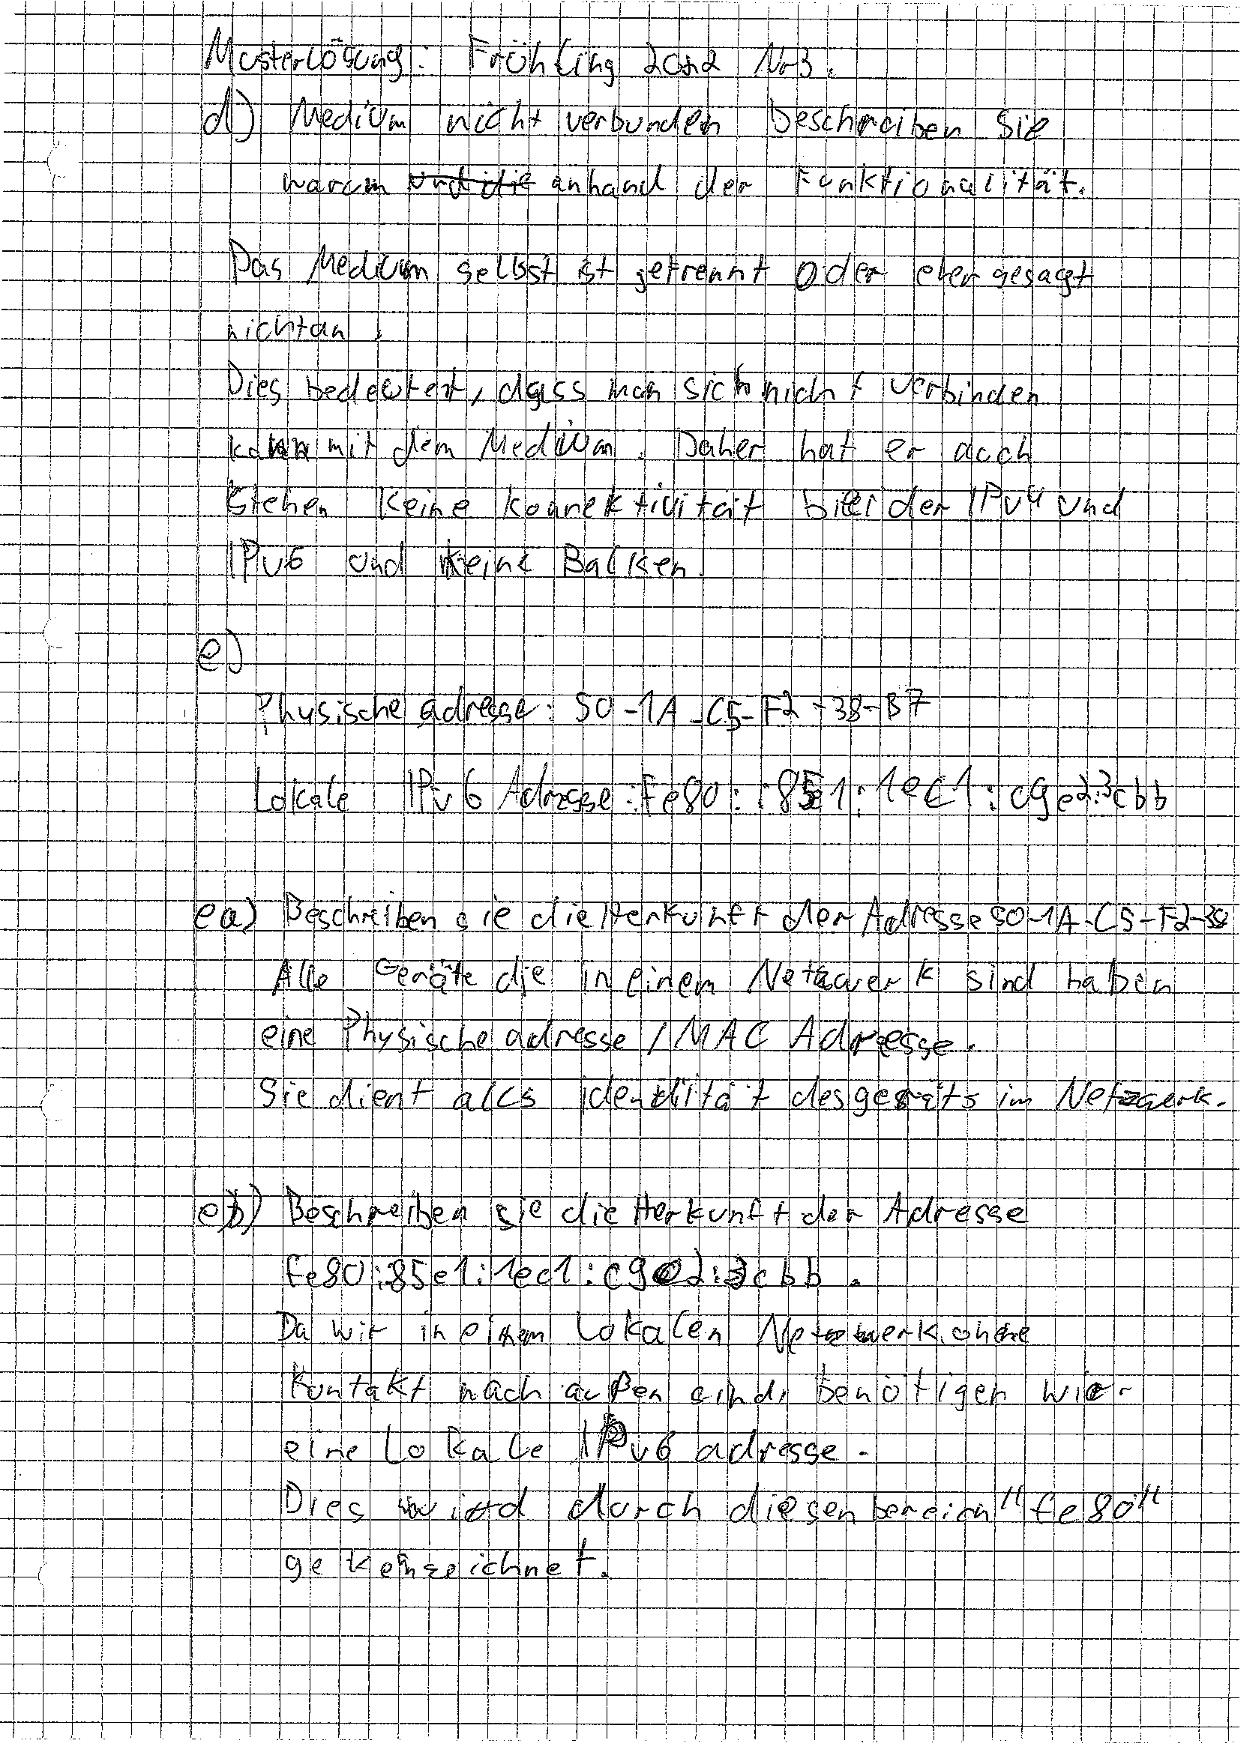 Musterlösung: Frühling 2022 Nr3.
d) Medium nicht verbunden beschreiben Sie
warum und die anhand der Funktionalität.
Das Medium selbst ist getrennt oder eher gesagt
nicht an.
Dies bedeutet, dass man sich nicht verbinden
kann mit dem Medium. Daher hat er auch
stehen keine konnektivität bei der IPv4 und
IPv6 und keine Balken.
e)
Physische adresse: 50-1A-C5-F2-38-B7
Lokale IPv6 Adresse: fe80::85e1:1ec1:c9e2:3cbb
ea) Beschreiben sie die Herkunft der Adresse 50-1A-C5-F2-38
Alle Geräte die in einem Netzwerk sind haben
eine Physische adresse / MAC Adresse.
Sie dient als identität des geräts im Netzwerk.
eb) Beschreiben sie die Herkunft der Adresse
fe80:85e1:1ec1:c9e2:3cbb.
Da wir in einem Lokalen Netzwerk ohne
Kontakt nach außen sind, benötigen wir
eine Lokale IPv6 adresse.
Dies wird durch diesen bereich "fe80"
gekenzeichnet.